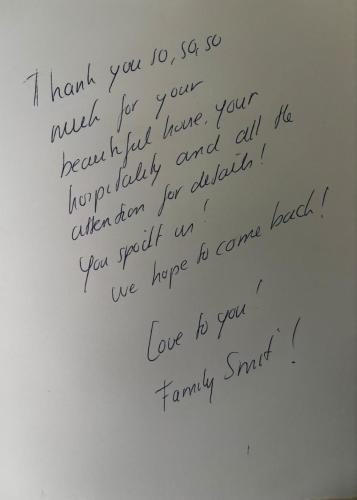 Thank you so, so, so
much for your
beautiful house, your
hospitality and all the
attention for details!
You spoilt us!
We hope to come back!
Love to you!
Family Smit!